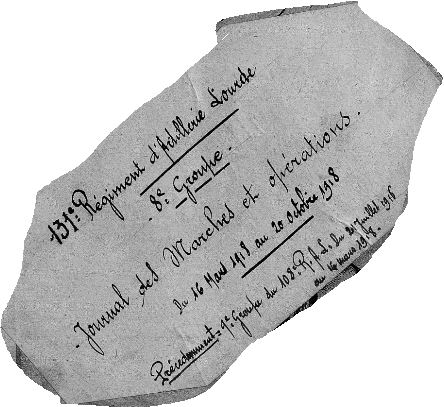 131e Régiment d'Artillerie Lourde
- 8e Groupe -
- Journal des Marches et opérations.
du 16 Mars 1918 au 20 Octobre 1918
Précédemment = 9e Groupe du 108e R.A.L. du 20 Juillet 1916
au 16 mars 1918.